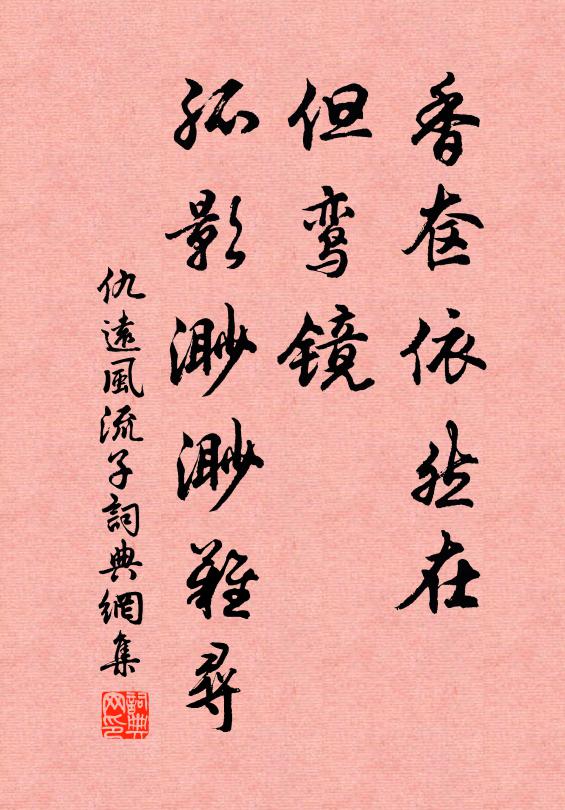 香奁依然在
但鸾鏡
孤影渺渺難尋
仇遠風流子詞典網集
詞典
网印